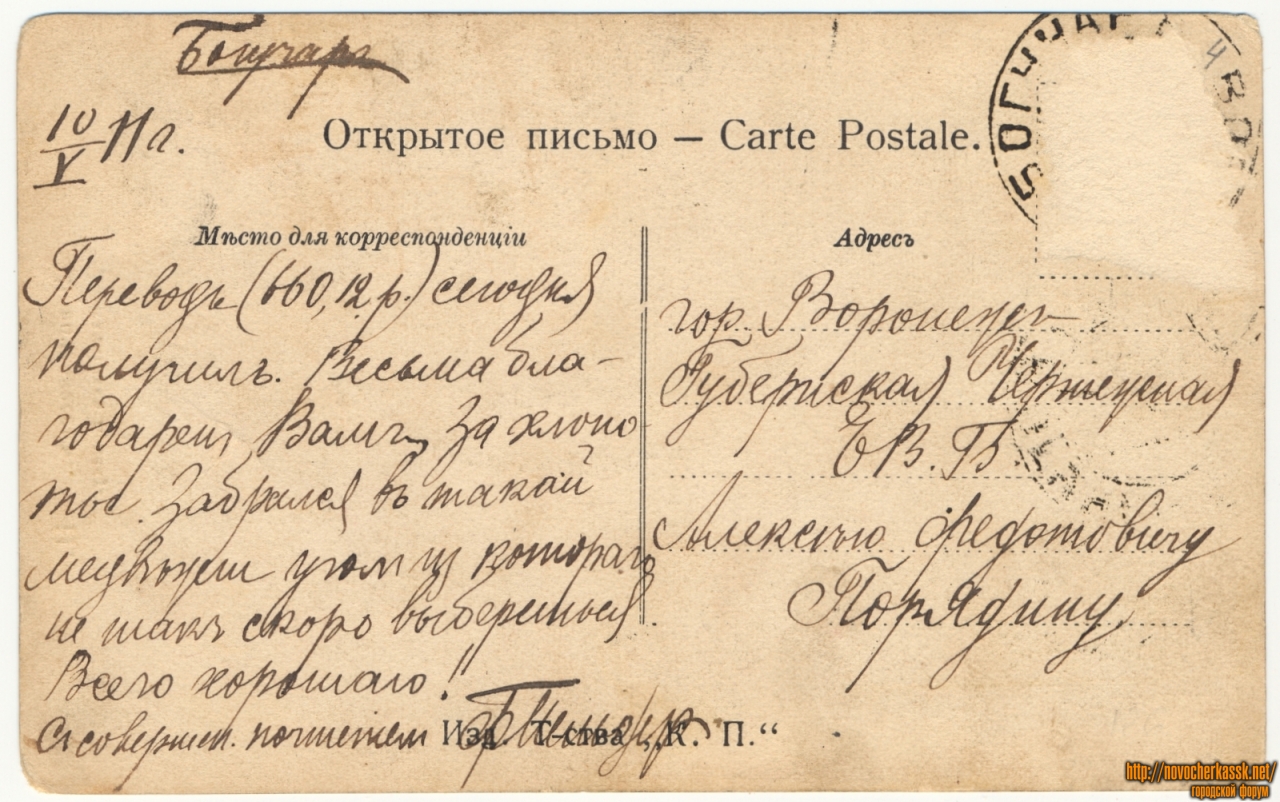 Богучаръ
10/V 11 г.
Открытое письмо — Carte Postale.
БОГУЧАР
ВОР
Мѣсто для корреспонденціи
Адресъ
Переводъ (660,12 р.) сегодня
получилъ. Весьма бла-
годаренъ Вамъ за хлопо-
ты. Забрался въ такой
медвѣжій уголъ изъ котораго
не такъ скоро выберешься.
Всего хорошаго!
Съ совершен. почтеніем
гор. Воронежъ
Губернская
Е. В. Б.
Алексѣю Федотовичу
Порядину
Изд. Т-ства „К. П.“
http://novocherkassk.net/
городской форум